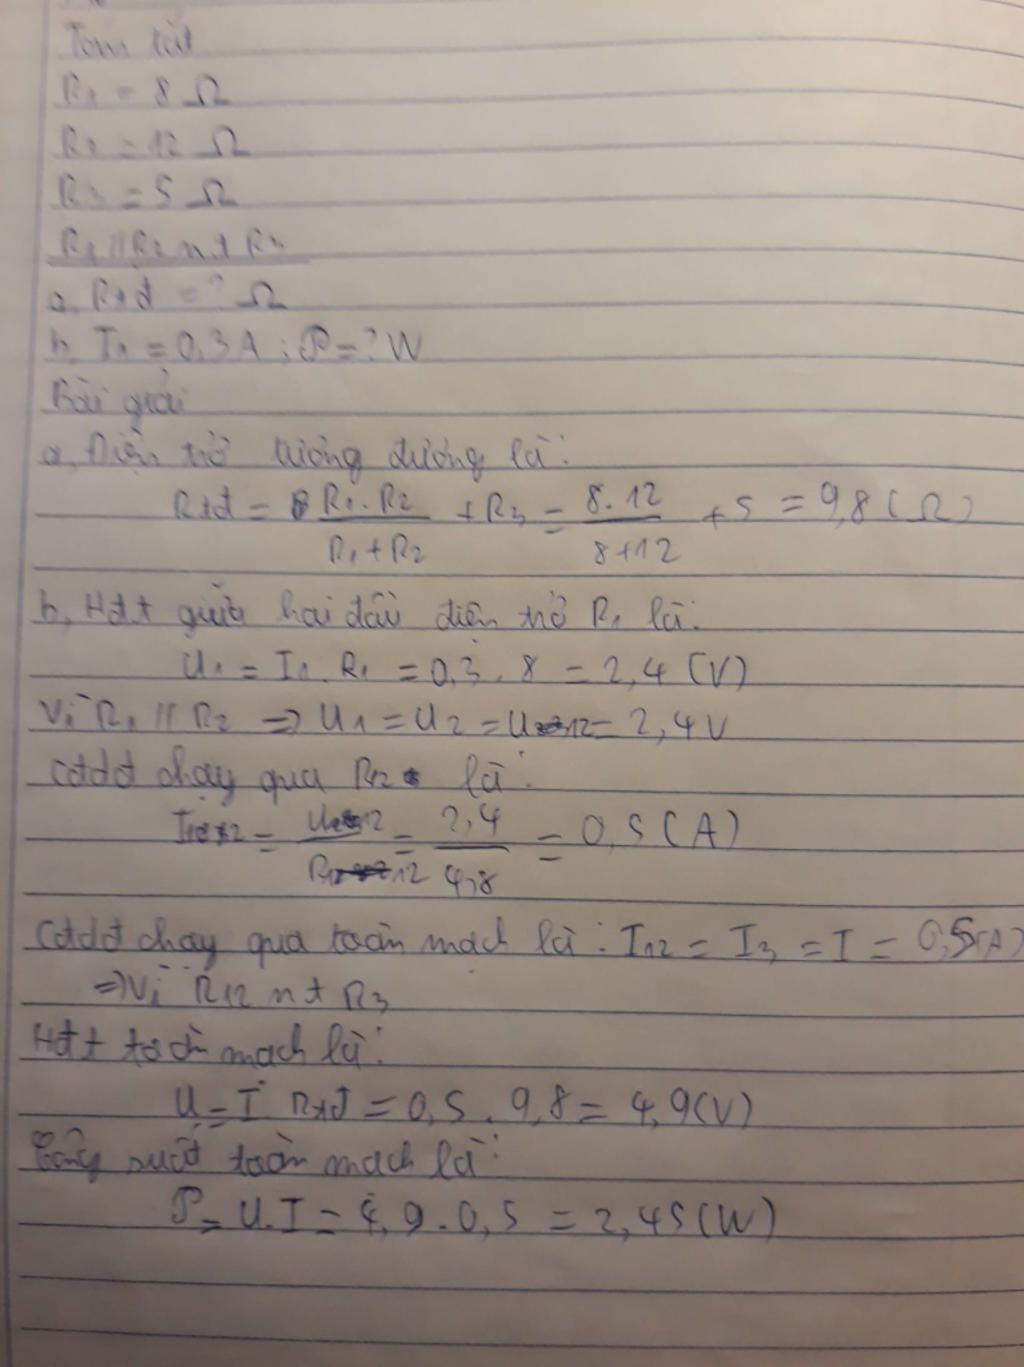 Tóm tắt
R1 = 8 Ω
R2 = 12 Ω
R3 = 5 Ω
R1 // R2 nt R3
a, Rtđ = ? Ω
b, I1 = 0,3A ; P = ? W
Bài giải
a, Điện trở tương đương là:
Rtđ = R1.R2 / R1+R2 + R3 = 8.12 / 8+12 + 5 = 9,8 (Ω)
b, Hđt giữa hai đầu điện trở R1 là:
U1 = I1 . R1 = 0,3 . 8 = 2,4 (V)
Vì R1 // R2 => U1 = U2 = U12 = 2,4V
Cđdđ chạy qua R12 là:
I12 = U12 / R12 = 2,4 / 4,8 = 0,5 (A)
Cđdđ chạy qua toàn mạch là: I12 = I3 = I = 0,5(A)
=> Vì R12 nt R3
Hđt toàn mạch là:
U = I . Rtđ = 0,5 . 9,8 = 4,9 (V)
Công suất toàn mạch là:
P = U.I = 4,9 . 0,5 = 2,45 (W)